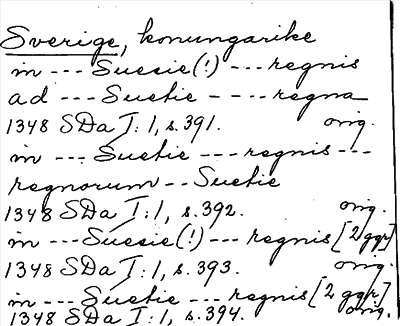 Sverige, konungarike
in --- Suesie(!) --- regnis
ad --- Suetie ---- regna
1348 SDa I:1, s.391. orig.
in --- Suetie --- regnis ---
regnorum -- Suetie
1348 SDa I:1, s.392. orig.
in --- Suesie(!) --- regnis [2 ggr]
1348 SDa I:1, s.393. orig.
in --- Suetie --- regnis [2 ggr]
1348 SDa I:1, s.394. orig.